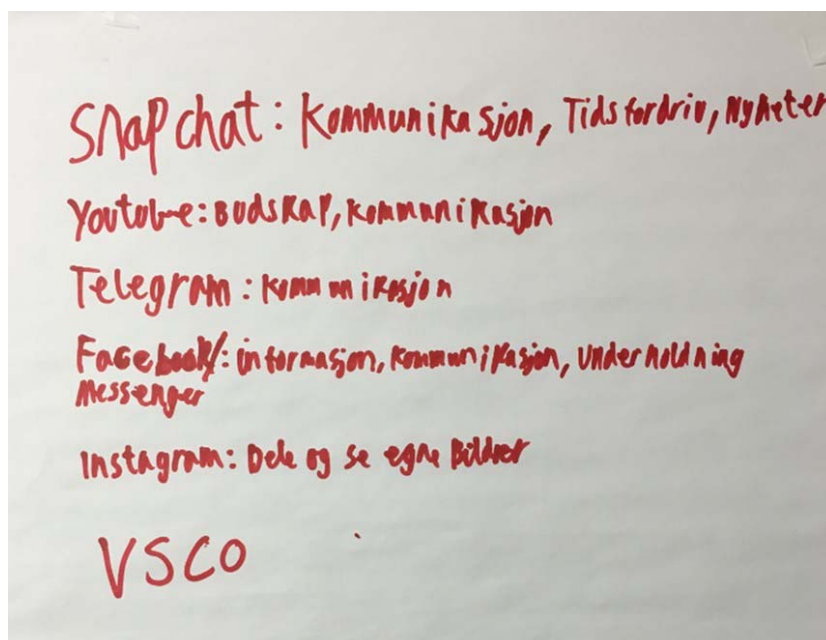 Snapchat: Kommunikasjon, Tidsfordriv, Nyheter
Youtube: Budskap, kommunikasjon
Telegram: kommunikasjon
Facebook/: informasjon, kommunikasjon, underholdning
Messenger
Instagram: Dele og se egne Bilder
VSCO